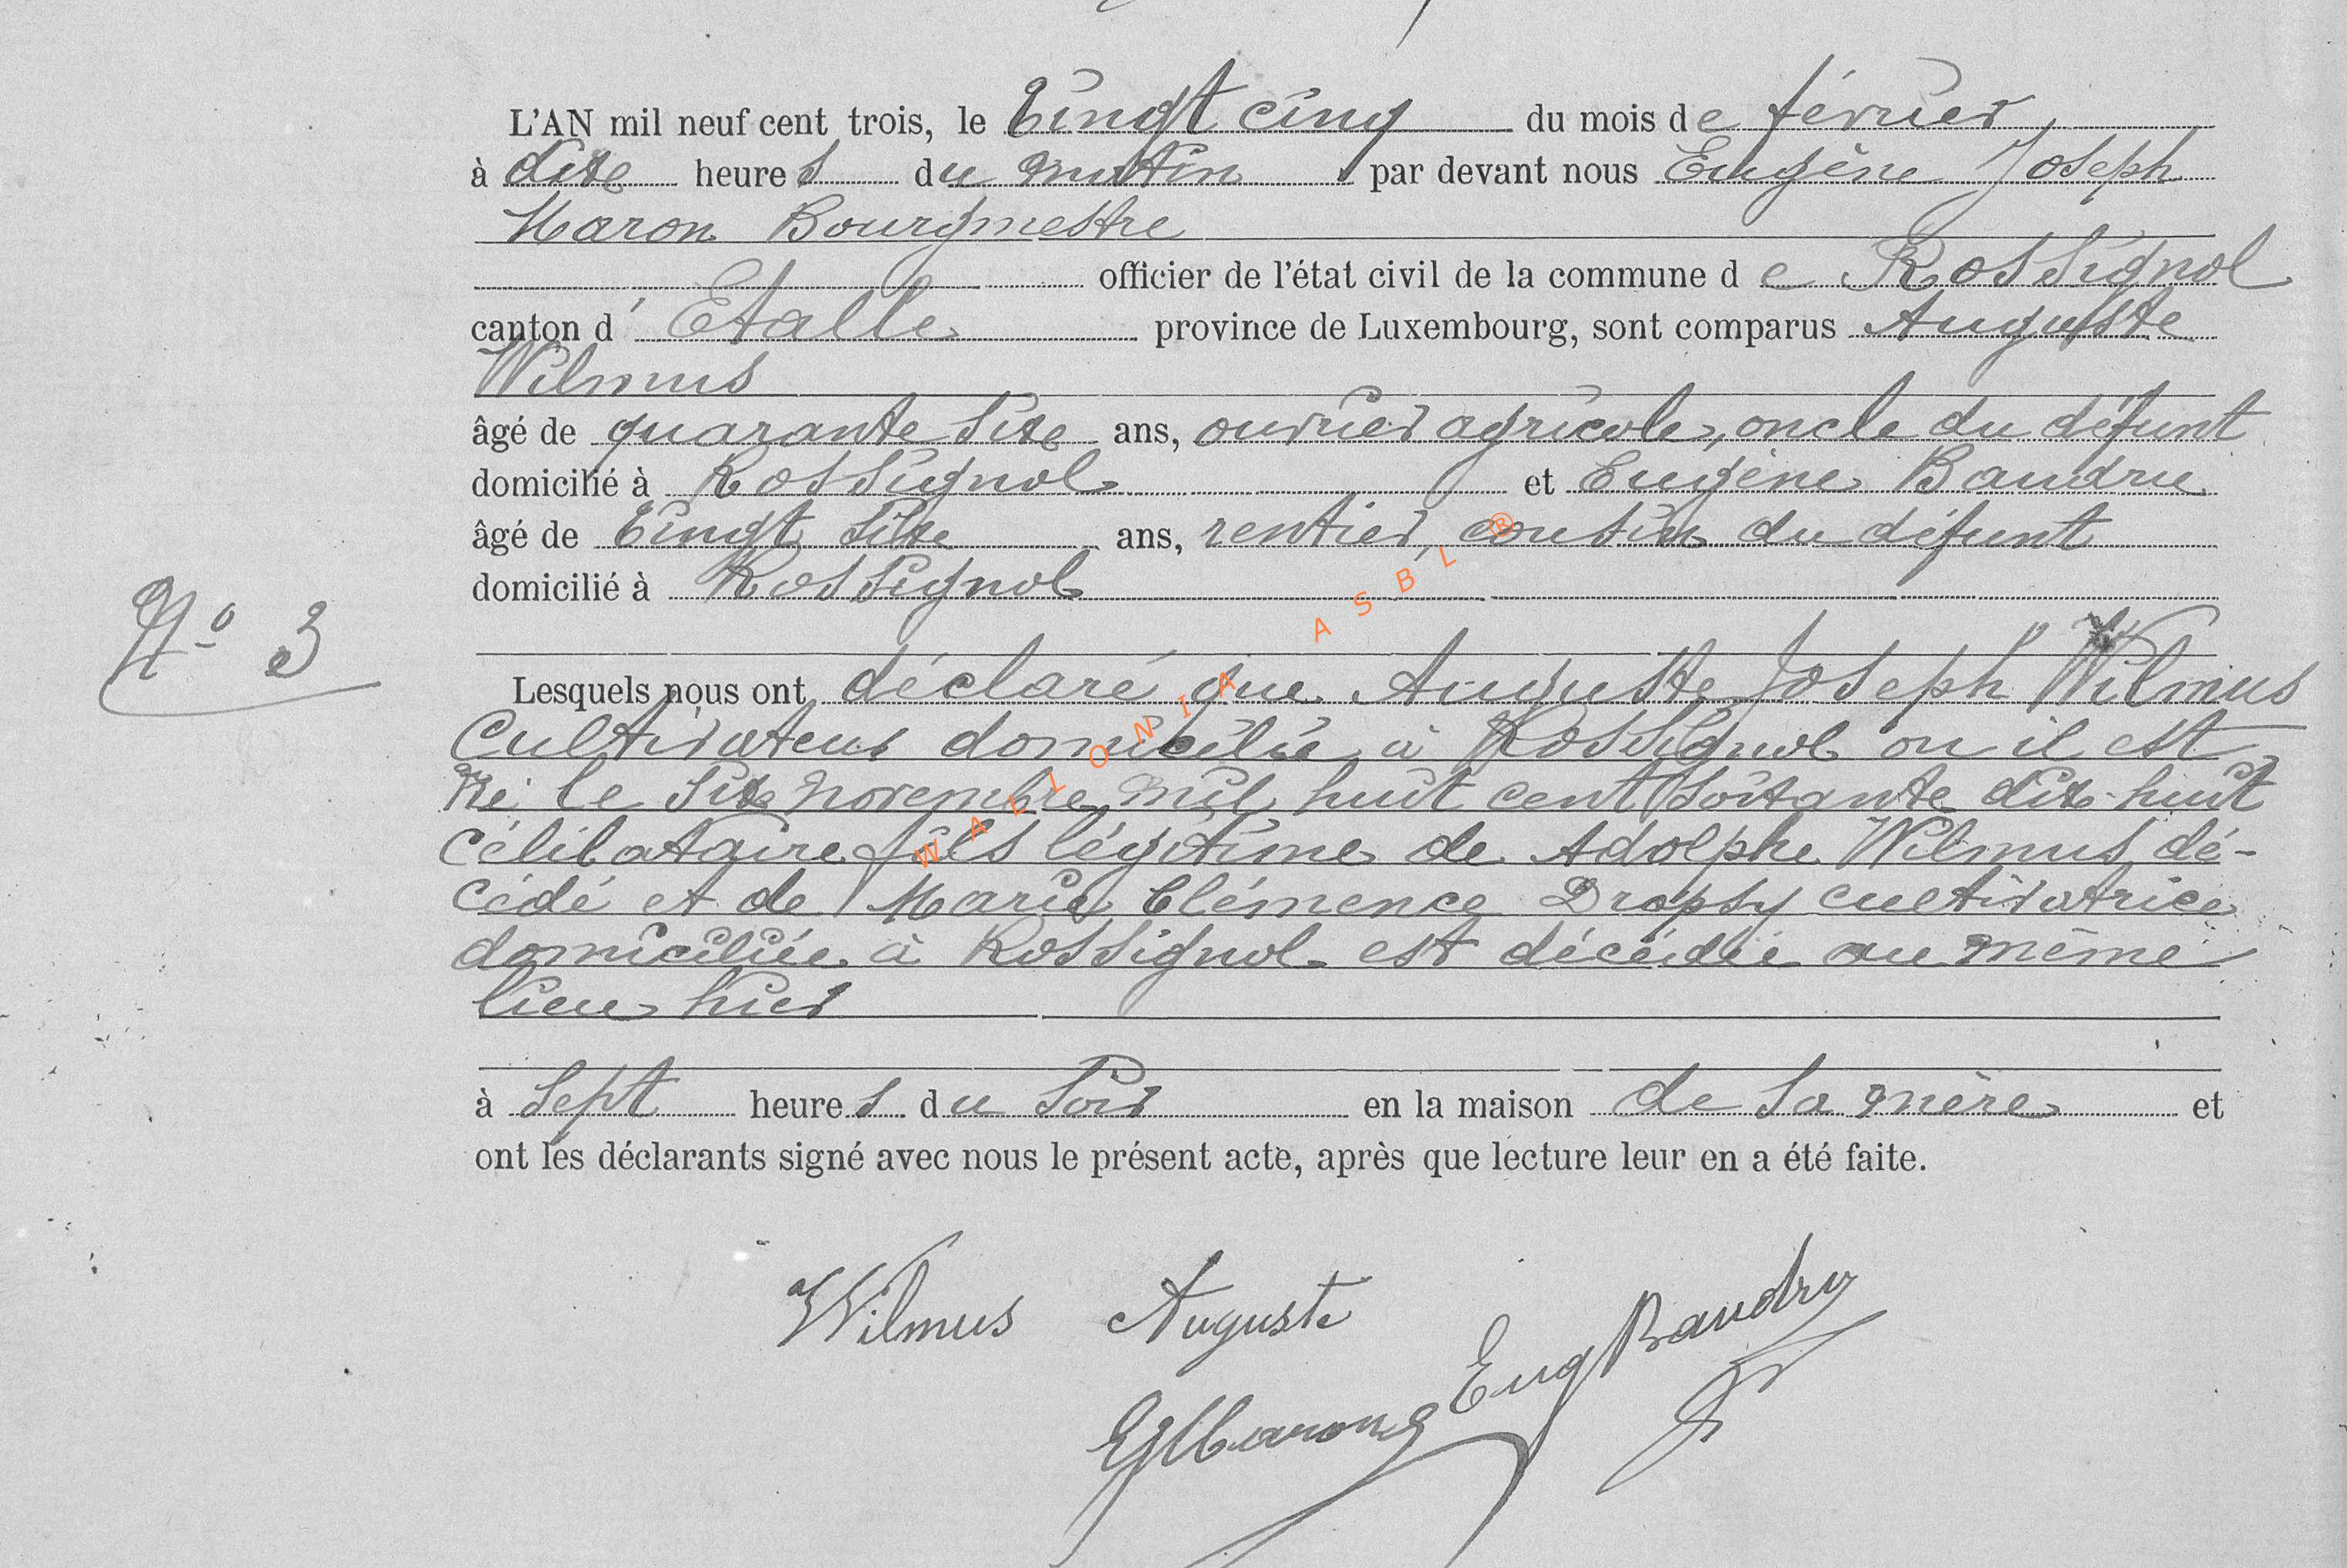 L'AN mil neuf cent trois, le Vingt cinq du mois de février
à dixe heures du matin par devant nous Eugène Joseph
Maron Bourgmestre
officier de l'état civil de la commune de Rossignol
canton d'Etalle province de Luxembourg, sont comparus Auguste
Wilmus
âgé de quarante sixe ans, ouvrier agricole, oncle du défunt
domicilié à Rossignol et Eugène Baudru
âgé de Vingt sixe ans, rentier, cousin du défunt
domicilié à Rossignol
N° 3
Lesquels nous ont déclaré que Auguste Joseph Wilmus
Cultivateur domicilié à Rossignol ou il est
né le six novembre mil huit cent soixante dix-huit
célibataire fils légitime de Adolphe Wilmus dé-
cédé et de Marie Clémence Dropsy cultivatrice
domiciliée à Rossignol est décédée au même
lieu hier
à sept heures du soir en la maison de sa mère et
ont les déclarants signé avec nous le présent acte, après que lecture leur en a été faite.
Wilmus Auguste
Eug Baudry
EJMaron
WALLONIA ASBL ®